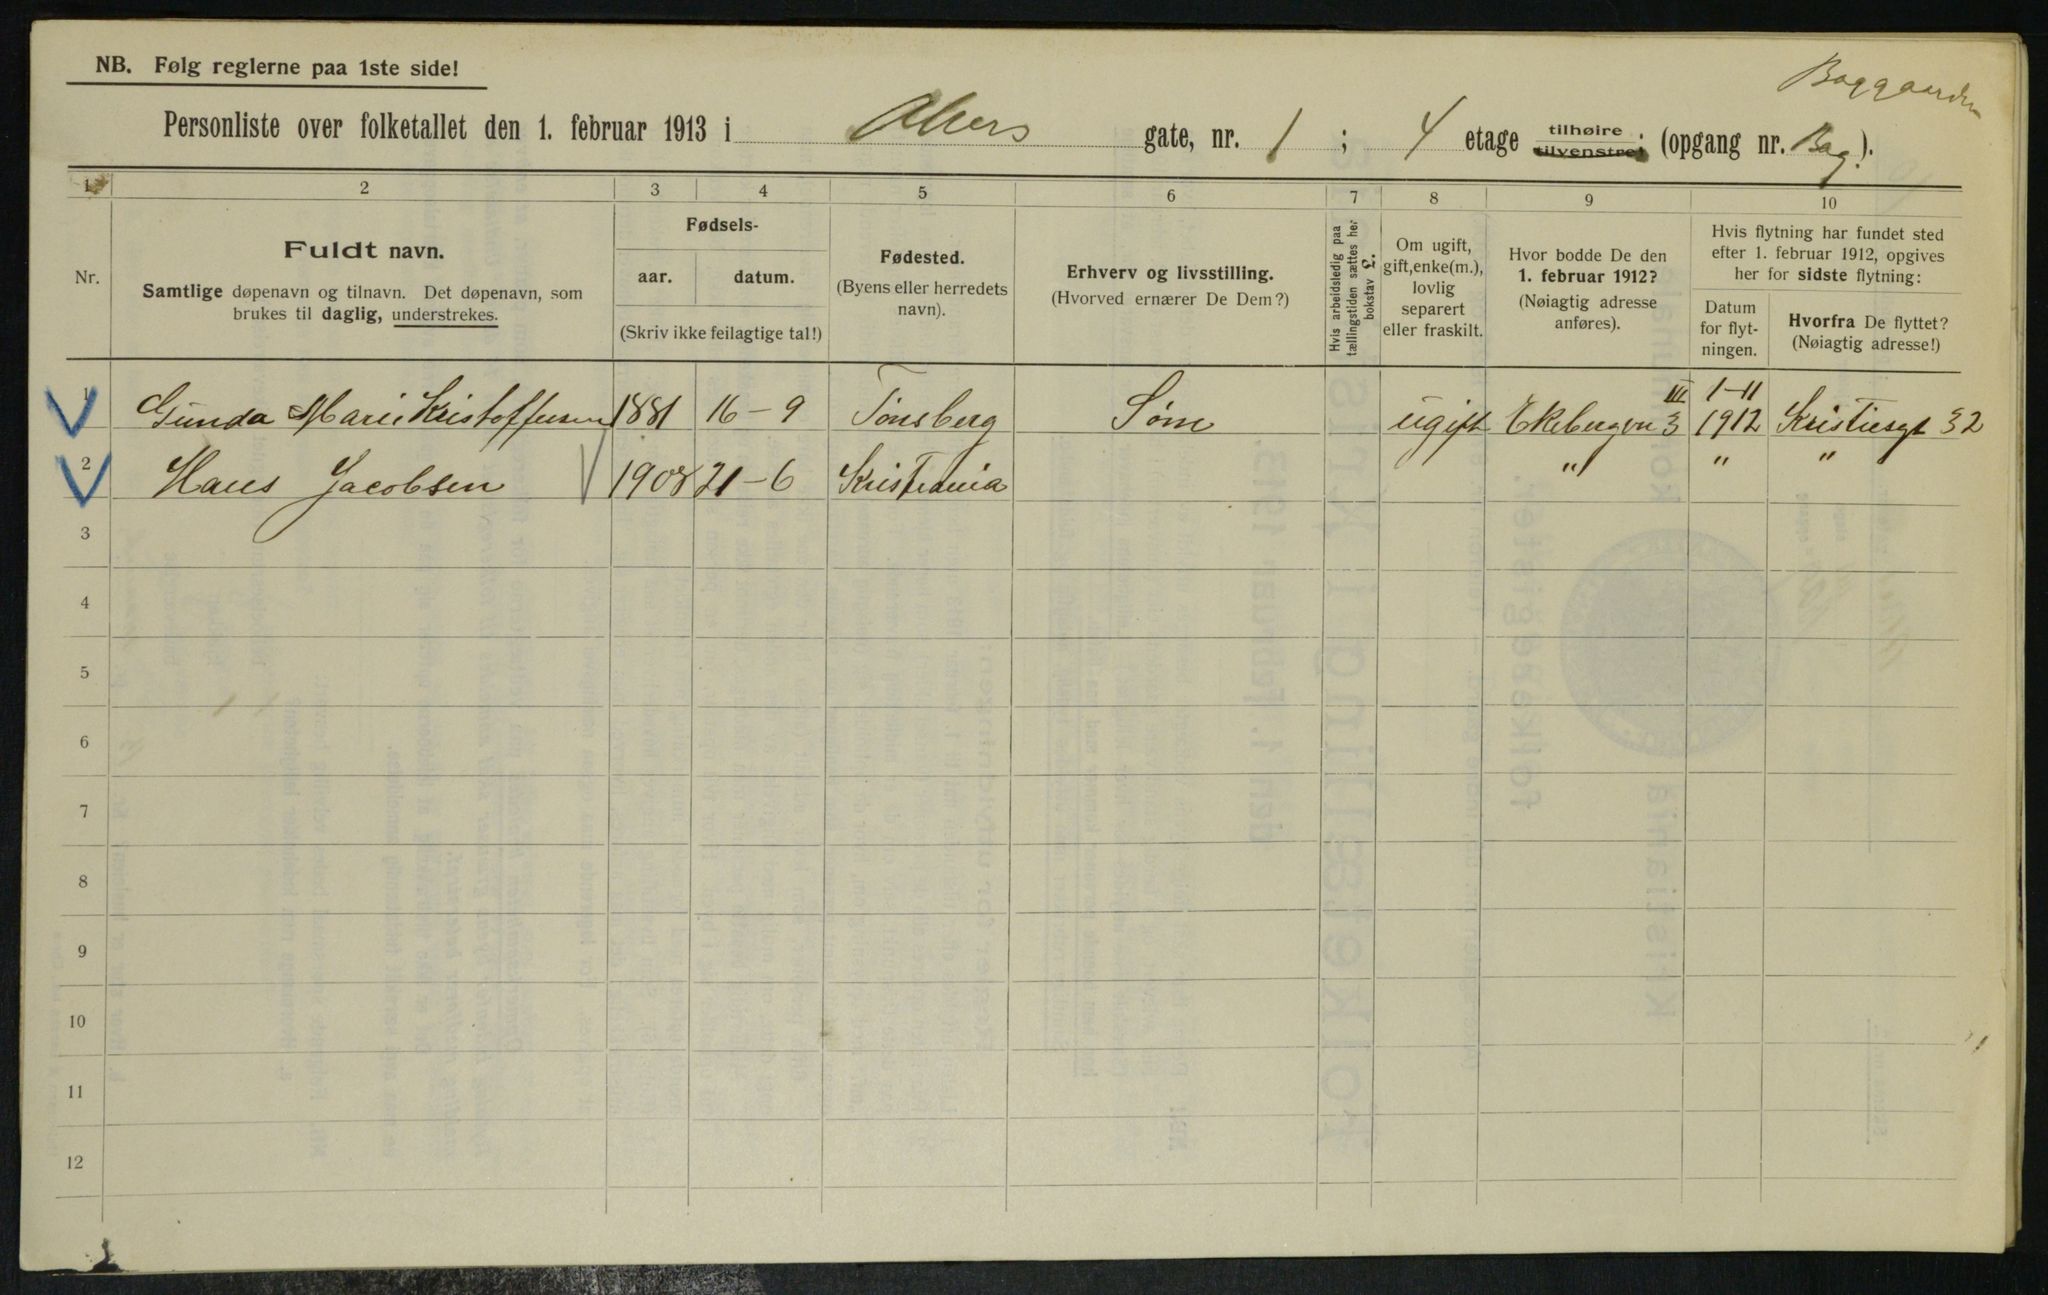 Baggaarden
NB. Følg reglerne paa 1ste side!
Personliste over folketallet den 1. februar 1913 i Akers gate, nr. 1 ; 4 etage tilhøire tilvenstre; (opgang nr. Bag.).
1 2 3 4 5 6 7 8 9 10
Nr.
Fuldt navn.
Samtlige døpenavn og tilnavn. Det døpenavn, som
brukes til daglig, understrekes.
Fødsels-
aar. datum.
(Skriv ikke feilagtige tal!)
Fødested.
(Byens eller herredets
navn).
Erhverv og livsstilling.
(Hvorved ernærer De Dem?)
Hvis arbeidsledig paa
tællingstiden sættes her
bokstav L.
Om ugift,
gift, enke(m.),
lovlig
separert
eller fraskilt.
Hvor bodde De den
1. februar 1912?
(Nøiagtig adresse
anføres).
Hvis flytning har fundet sted
efter 1. februar 1912, opgives
her for sidste flytning:
Datum
for flyt-
ningen.
Hvorfra De flyttet?
(Nøiagtig adresse!)
1 Gunda Marie Kristoffersen 1881 16-9 Tønsberg Søm ugift Ekebergvn 3 III 1-11 1912 Kristiesgt 32
2 Hans Jacobsen 1908 21-6 Kristiania " " "
3
4
5
6
7
8
9
10
11
12